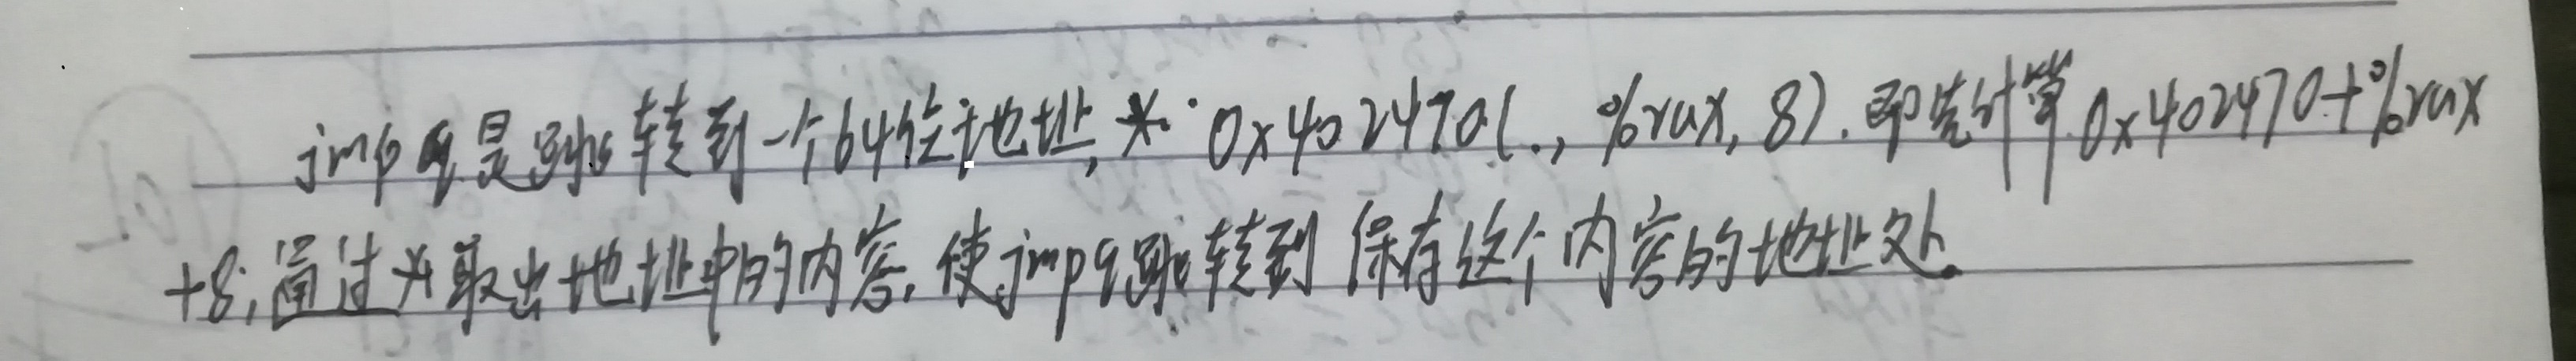 jmpq是跳转到一个64位地址,*·0x402470(.,%rax,8).即先计算0x402470+%rax
+8;通过*取出地址中的内容,使jmpq跳转到保存这个内容的地址处.